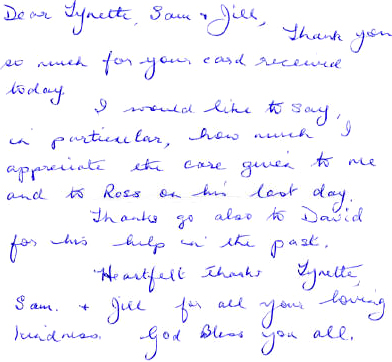 Dear Lynette, Sam + Jill,
Thank you
so much for your card received
today.
I would like to say,
in particular, how much I
appreciate the care given to me
and to Ross on his last day.
Thanks go also to David
for his help in the past.
Heartfelt thanks Lynette,
Sam. + Jill for all your loving
kindness. God Bless you all.